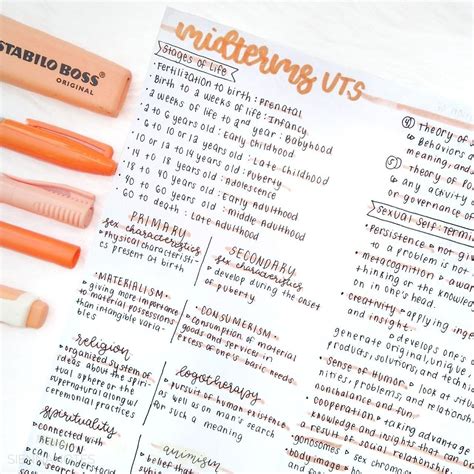 STABILO BOSS
ORIGINAL
midterms UTS
Stages of Life
• Fertilization to birth: Prenatal
• Birth to 2 weeks of life: Infancy
• 2 weeks of life to 2nd year: Babyhood
• 2 to 6 years old: Early Childhood
• 6 to 10 or 12 years old: Late Childhood
• 10 or 12 to 14 years old: Puberty
• 14 to 18 years old: Adolescence
• 18 to 40 years old: Early Adulthood
• 40 to 60 years old: Middle Adulthood
• 60 to death: Late Adulthood
PRIMARY
sex characteristics
• physical characteristi-
cs present at birth
• MATERIALISM •
• giving more importance
to material possessions
than intangible variab-
les
religion
• organized system of
ideas about the spiri-
tual sphere or the
supernatural along w/
ceremonial practices
spirituality
• connected with
RELIGION
• can be understood
as a search
SECONDARY
sex characteristics
• develop during the onset
of puberty
• CONSUMERISM •
• consumption of material
goods and service in
excess of one's basic needs
logotherapy
• pursuit of human existence
as well as on man's search
for such a meaning
animism
• belief that
④ Theory of
• Behaviors a
meaning, and
⑤ Theory of
• any activity
or governance
Sexual Self: Termi
• Persistence • not giv
to a problem is not
• metacognition • awar
thinking or the know
on in one's head.
• creativity • applying
and insight.
generate original, unique,
products, solutions, and techni
• Sense of Humor • look at situ
nities, problems, and relations
nonbalance and fun
• cooperation • taking advantage
knowledge and insights that
a result of social relationship
gonosomes
body image